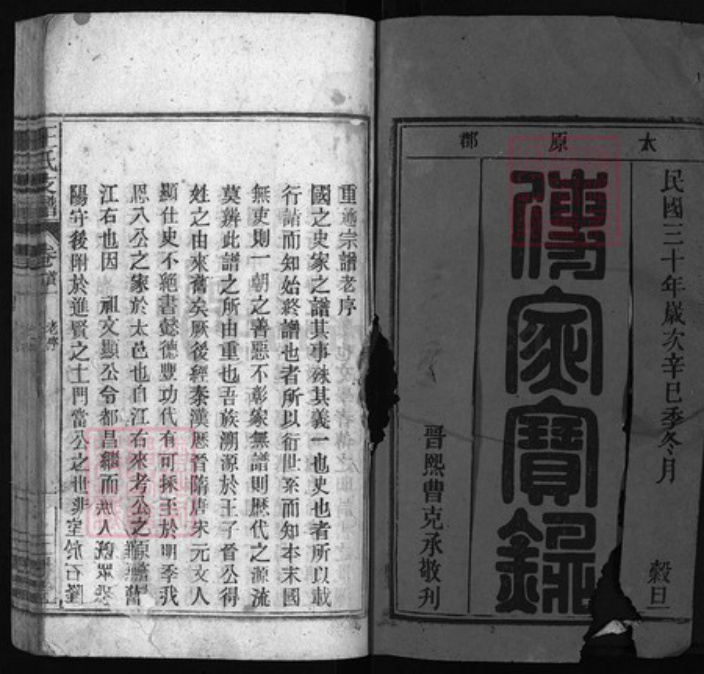 太原郡
民國三十年歲次辛巳季冬月
穀旦
傳家寶錄
晉熙曹克承敬刋
重造宗譜老序
國之史家之譜其事殊其義一也史也者所以載
行諳而知始終譜也者所以衍世系而知本末國
無史則一朝之善惡不彰家無譜則歷代之源流
莫辨此譜之所由重也吾族溯源於王子晉公得
姓之由來舊矣厥後經秦漢歷晉隋唐宋元文人
顯仕史不絕書懿德豐功代有可採至於明季我
恩八公之家於太邑也自江右來考公之源舊
江右也因 祖文顯公令都昌繼而人眾
陽守後附於進賢之土門當公之世非室石
王氏支譜
卷首
老序